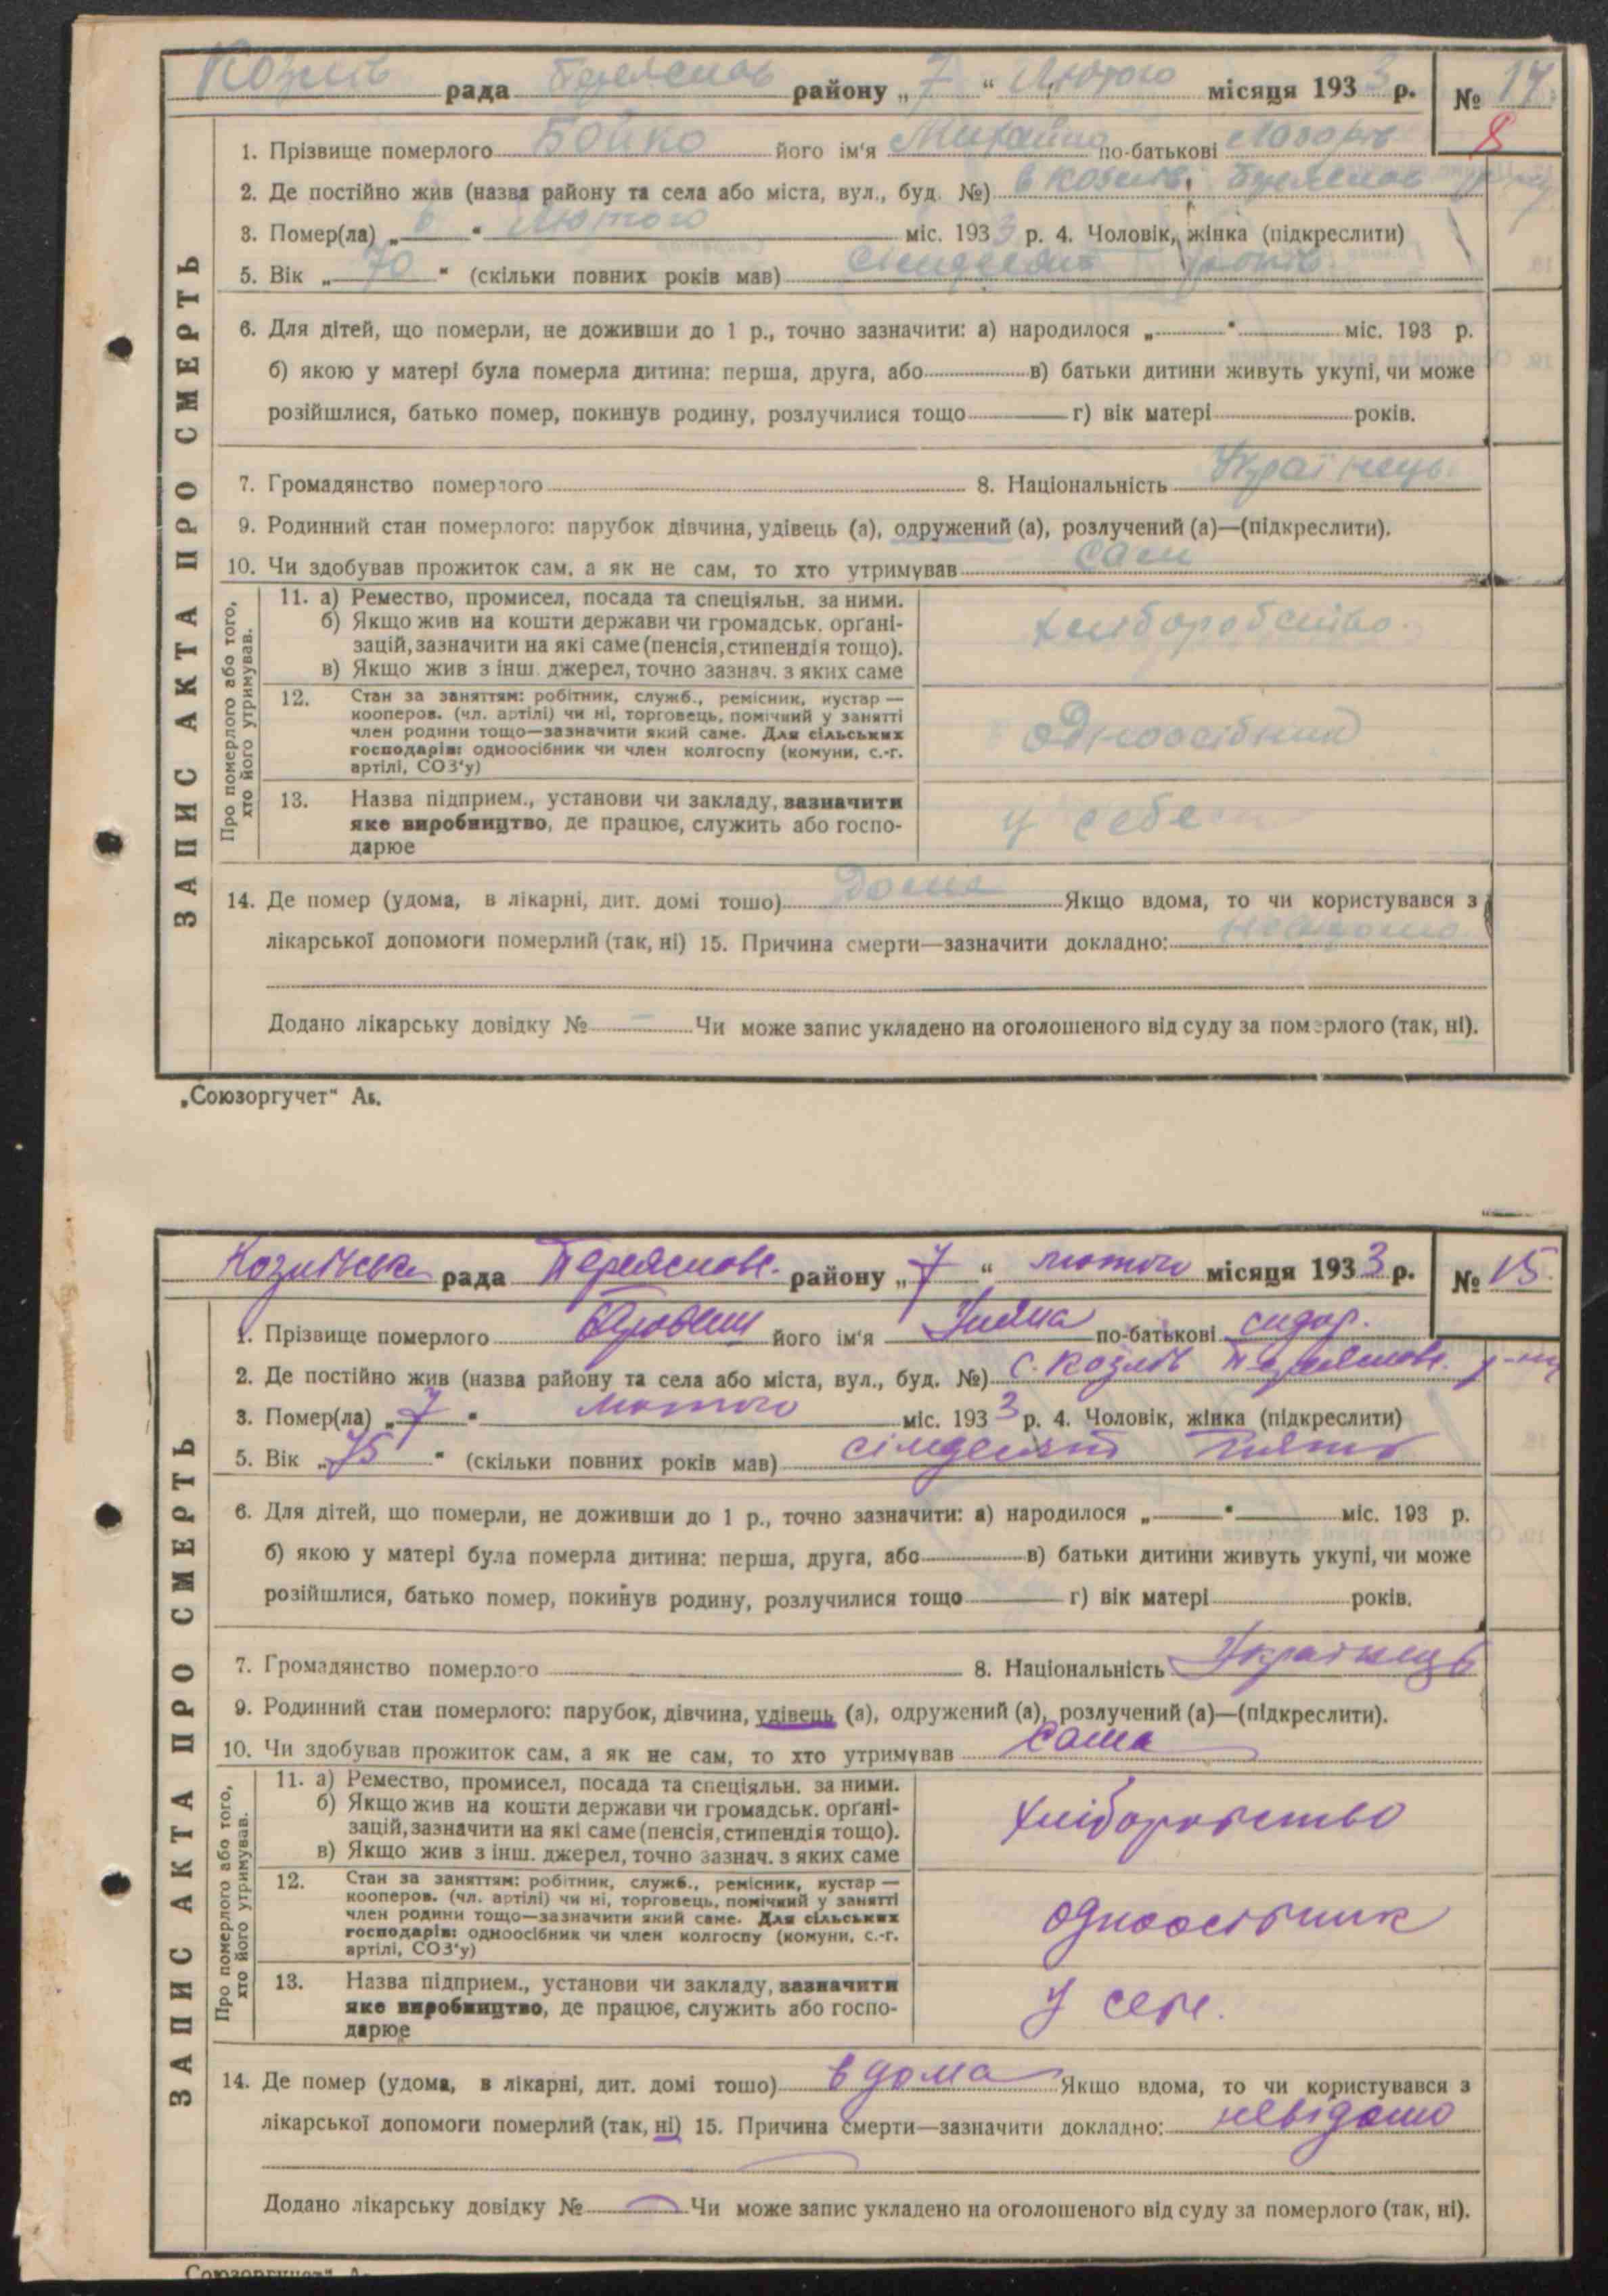 Козлів рада району „ 7 “ Лютого місяця 1933 р. № 14
8
1. Прізвище померлого Бойко його ім'я Михайло по-батькові
2. Де постійно жив (назва району та села або міста, вул., буд. №) в Козлів
3. Помер(ла) „ 6 “ лютого міс. 1933 р. 4. Чоловік, жінка (підкреслити)
5. Вік „ 70 “ (скільки повних років мав) сімдесят років
6. Для дітей, що померли, не доживши до 1 р., точно зазначити: а) народилося „ “ міс. 193 р.
б) якою у матері була померла дитина: перша, друга, або в) батьки дитини живуть укупі, чи може
розійшлися, батько помер, покинув родину, розлучилися тощо г) вік матері років.
7. Громадянство померлого 8. Національність Українець
9. Родинний стан померлого: парубок дівчина, удівець (а), одружений (а), розлучений (а)—(підкреслити).
10. Чи здобував прожиток сам, а як не сам, то хто утримував сам
ЗАПИС АКТА ПРО СМЕРТЬ
Про померлого або того,
хто його утримував.
11. а) Ремество, промисел, посада та спеціяльн. за ними.
б) Якщо жив на кошти держави чи громадськ. органі-
зацій, зазначити на які саме (пенсія, стипендія тощо).
в) Якщо жив з інш. джерел, точно зазнач. з яких саме
хліборобство.
12. Стан за заняттям: робітник, служб., ремісник, кустар —
кооперов. (чл. артілі) чи ні, торговець, помічний у занятті
член родини тощо—зазначити який саме. Для сільських
господарів: одноосібник чи член колгоспу (комуни, с.-г.
артілі, СОЗ'у)
одноосібник
13. Назва підприєм., установи чи закладу, зазначити
яке виробництво, де працює, служить або госпо-
дарює
у себе
14. Де помер (удома, в лікарні, дит. домі тошо) Дома Якщо вдома, то чи користувався з
лікарської допомоги померлий (так, ні) 15. Причина смерти—зазначити докладно:
Додано лікарську довідку № — Чи може запис укладено на оголошеного від суду за померлого (так, ні).
„Союзоргучет“ Ав.
Козлівська рада Переяслове. району „ 7 “ лютого місяця 1933 р. № 15.
1. Прізвище померлого його ім'я по-батькові сидор.
2. Де постійно жив (назва району та села або міста, вул., буд. №) с. Козлів Переяслове. р-ну
3. Помер(ла) „ 7 “ лютого міс. 1933 р. 4. Чоловік, жінка (підкреслити)
5. Вік „ 75 “ (скільки повних років мав) сімдесят пять
6. Для дітей, що померли, не доживши до 1 р., точно зазначити: а) народилося „ “ міс. 193 р.
б) якою у матері була померла дитина: перша, друга, або в) батьки дитини живуть укупі, чи може
розійшлися, батько помер, покинув родину, розлучилися тощо г) вік матері років.
7. Громадянство померлого 8. Національність Українець
9. Родинний стан померлого: парубок, дівчина, удівець (а), одружений (а), розлучений (а)—(підкреслити).
10. Чи здобував прожиток сам, а як не сам, то хто утримував сама
ЗАПИС АКТА ПРО СМЕРТЬ
Про померлого або того,
хто його утримував.
11. а) Ремество, промисел, посада та спеціяльн. за ними.
б) Якщо жив на кошти держави чи громадськ. органі-
зацій, зазначити на які саме (пенсія, стипендія тощо).
в) Якщо жив з інш. джерел, точно зазнач. з яких саме
хліборобство
12. Стан за заняттям: робітник, служб., ремісник, кустар —
кооперов. (чл. артілі) чи ні, торговець, помічний у занятті
член родини тощо—зазначити який саме. Для сільських
господарів: одноосібник чи член колгоспу (комуни, с.-г.
артілі, СОЗ'у)
одноосібник
13. Назва підприєм., установи чи закладу, зазначити
яке виробництво, де працює, служить або госпо-
дарює
у себе.
14. Де помер (удома, в лікарні, дит. домі тошо) вдома Якщо вдома, то чи користувався з
лікарської допомоги померлий (так, ні) 15. Причина смерти—зазначити докладно: невідомо
Додано лікарську довідку № — Чи може запис укладено на оголошеного від суду за померлого (так, ні).
Союзоргучет“ А